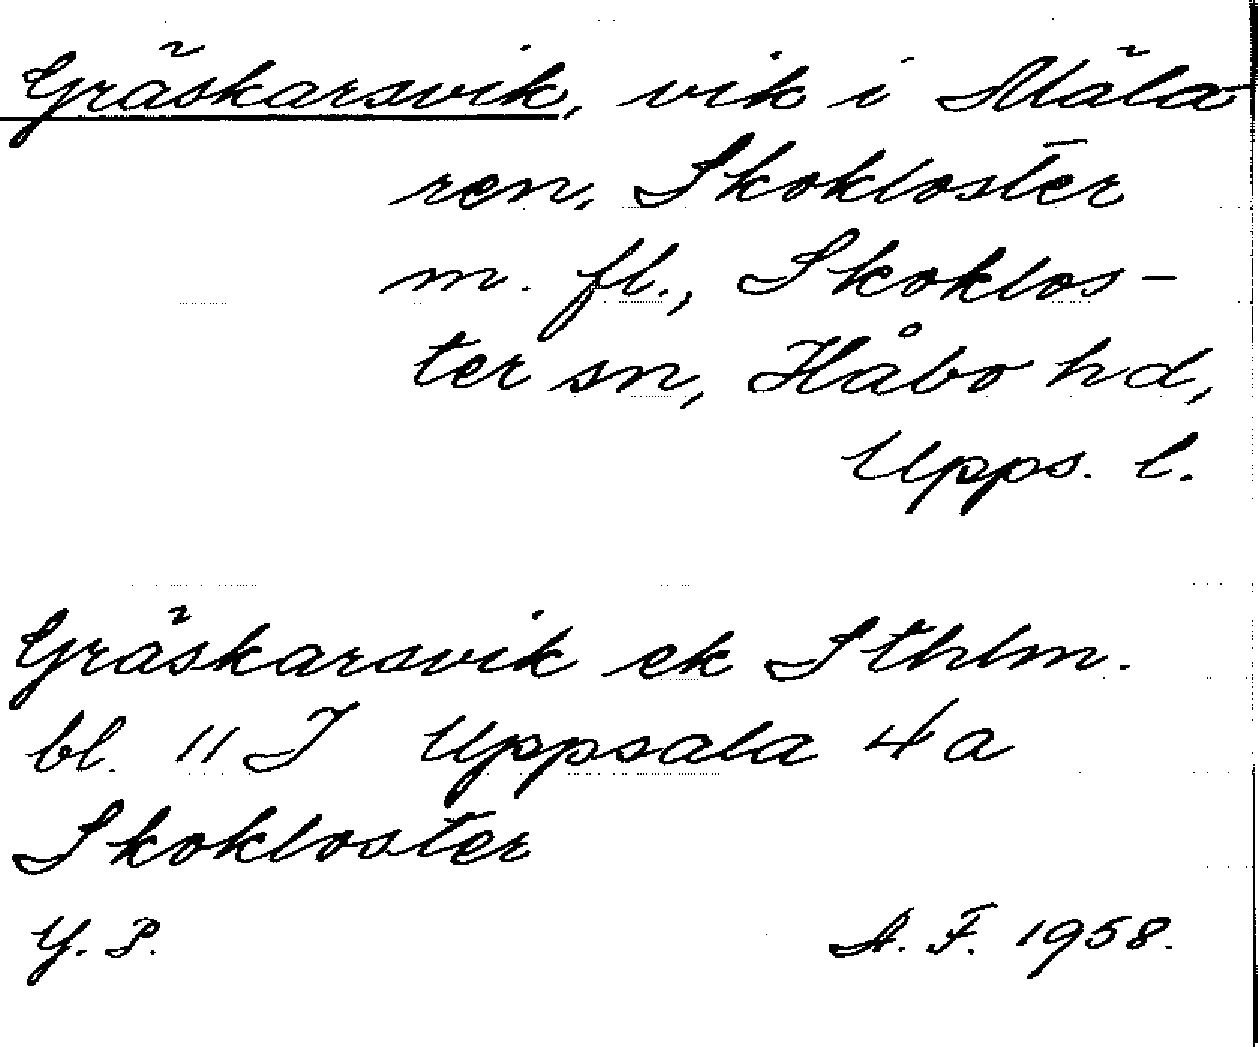 Gräskarsvik, vik i Mäla-
ren, Skokloster
m. fl., Skoklos-
ter sn, Håbo hd,
Upps. l.
Gräskarsvik ek Sthlm.
bl. 11 I Uppsala 4a
Skokloster
Y. P.
A. F. 1958.